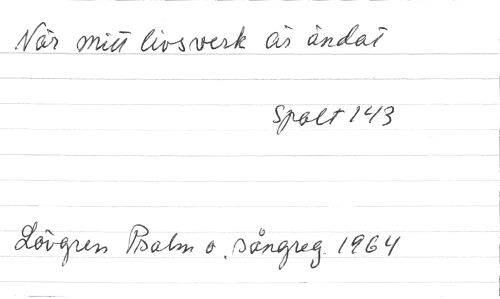 När mitt livsverk är ändat
spalt 143
Lövgren Psalm o. sångreg. 1964